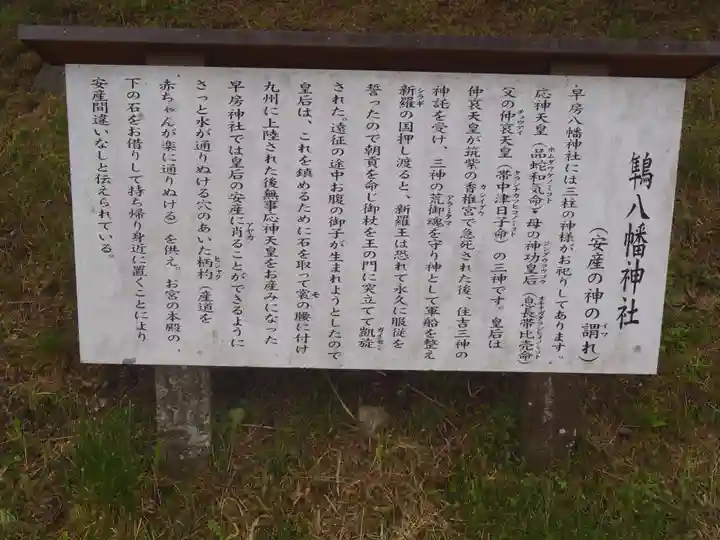 鶽八幡神社
（安産の神の謂れ）
早房八幡神社には三柱の神様がお祀りしてあります。
応神天皇（品蛇和気命）母の神功皇后（息長帯比売命）
父の仲哀天皇（帯中津日子命）の三神です。皇后は
仲哀天皇が筑紫の香椎宮で急死された後、住吉三神の
神託を受け、三神の荒御魂を守り神として軍船を整え
新羅の国押し渡ると、新羅王は恐れて永久に服従を
誓ったので朝貢を命じ御杖を王の門に突立てて凱旋
された、遠征の途中お腹の御子が生まれようとしたので
皇后は、これを鎮めるために石を取って裳の腰に付け
九州に上陸された後無事応神天皇をお産みになった
早房神社では皇后の安産に肖ることができるように
さっと水が通りぬける穴のあいた柄杓（産道を
赤ちゃんが楽に通りぬける）を供え。お宮の本殿の、
下の石をお借りして持ち帰り身近に置くことにより
安産間違いなしと伝えられている。